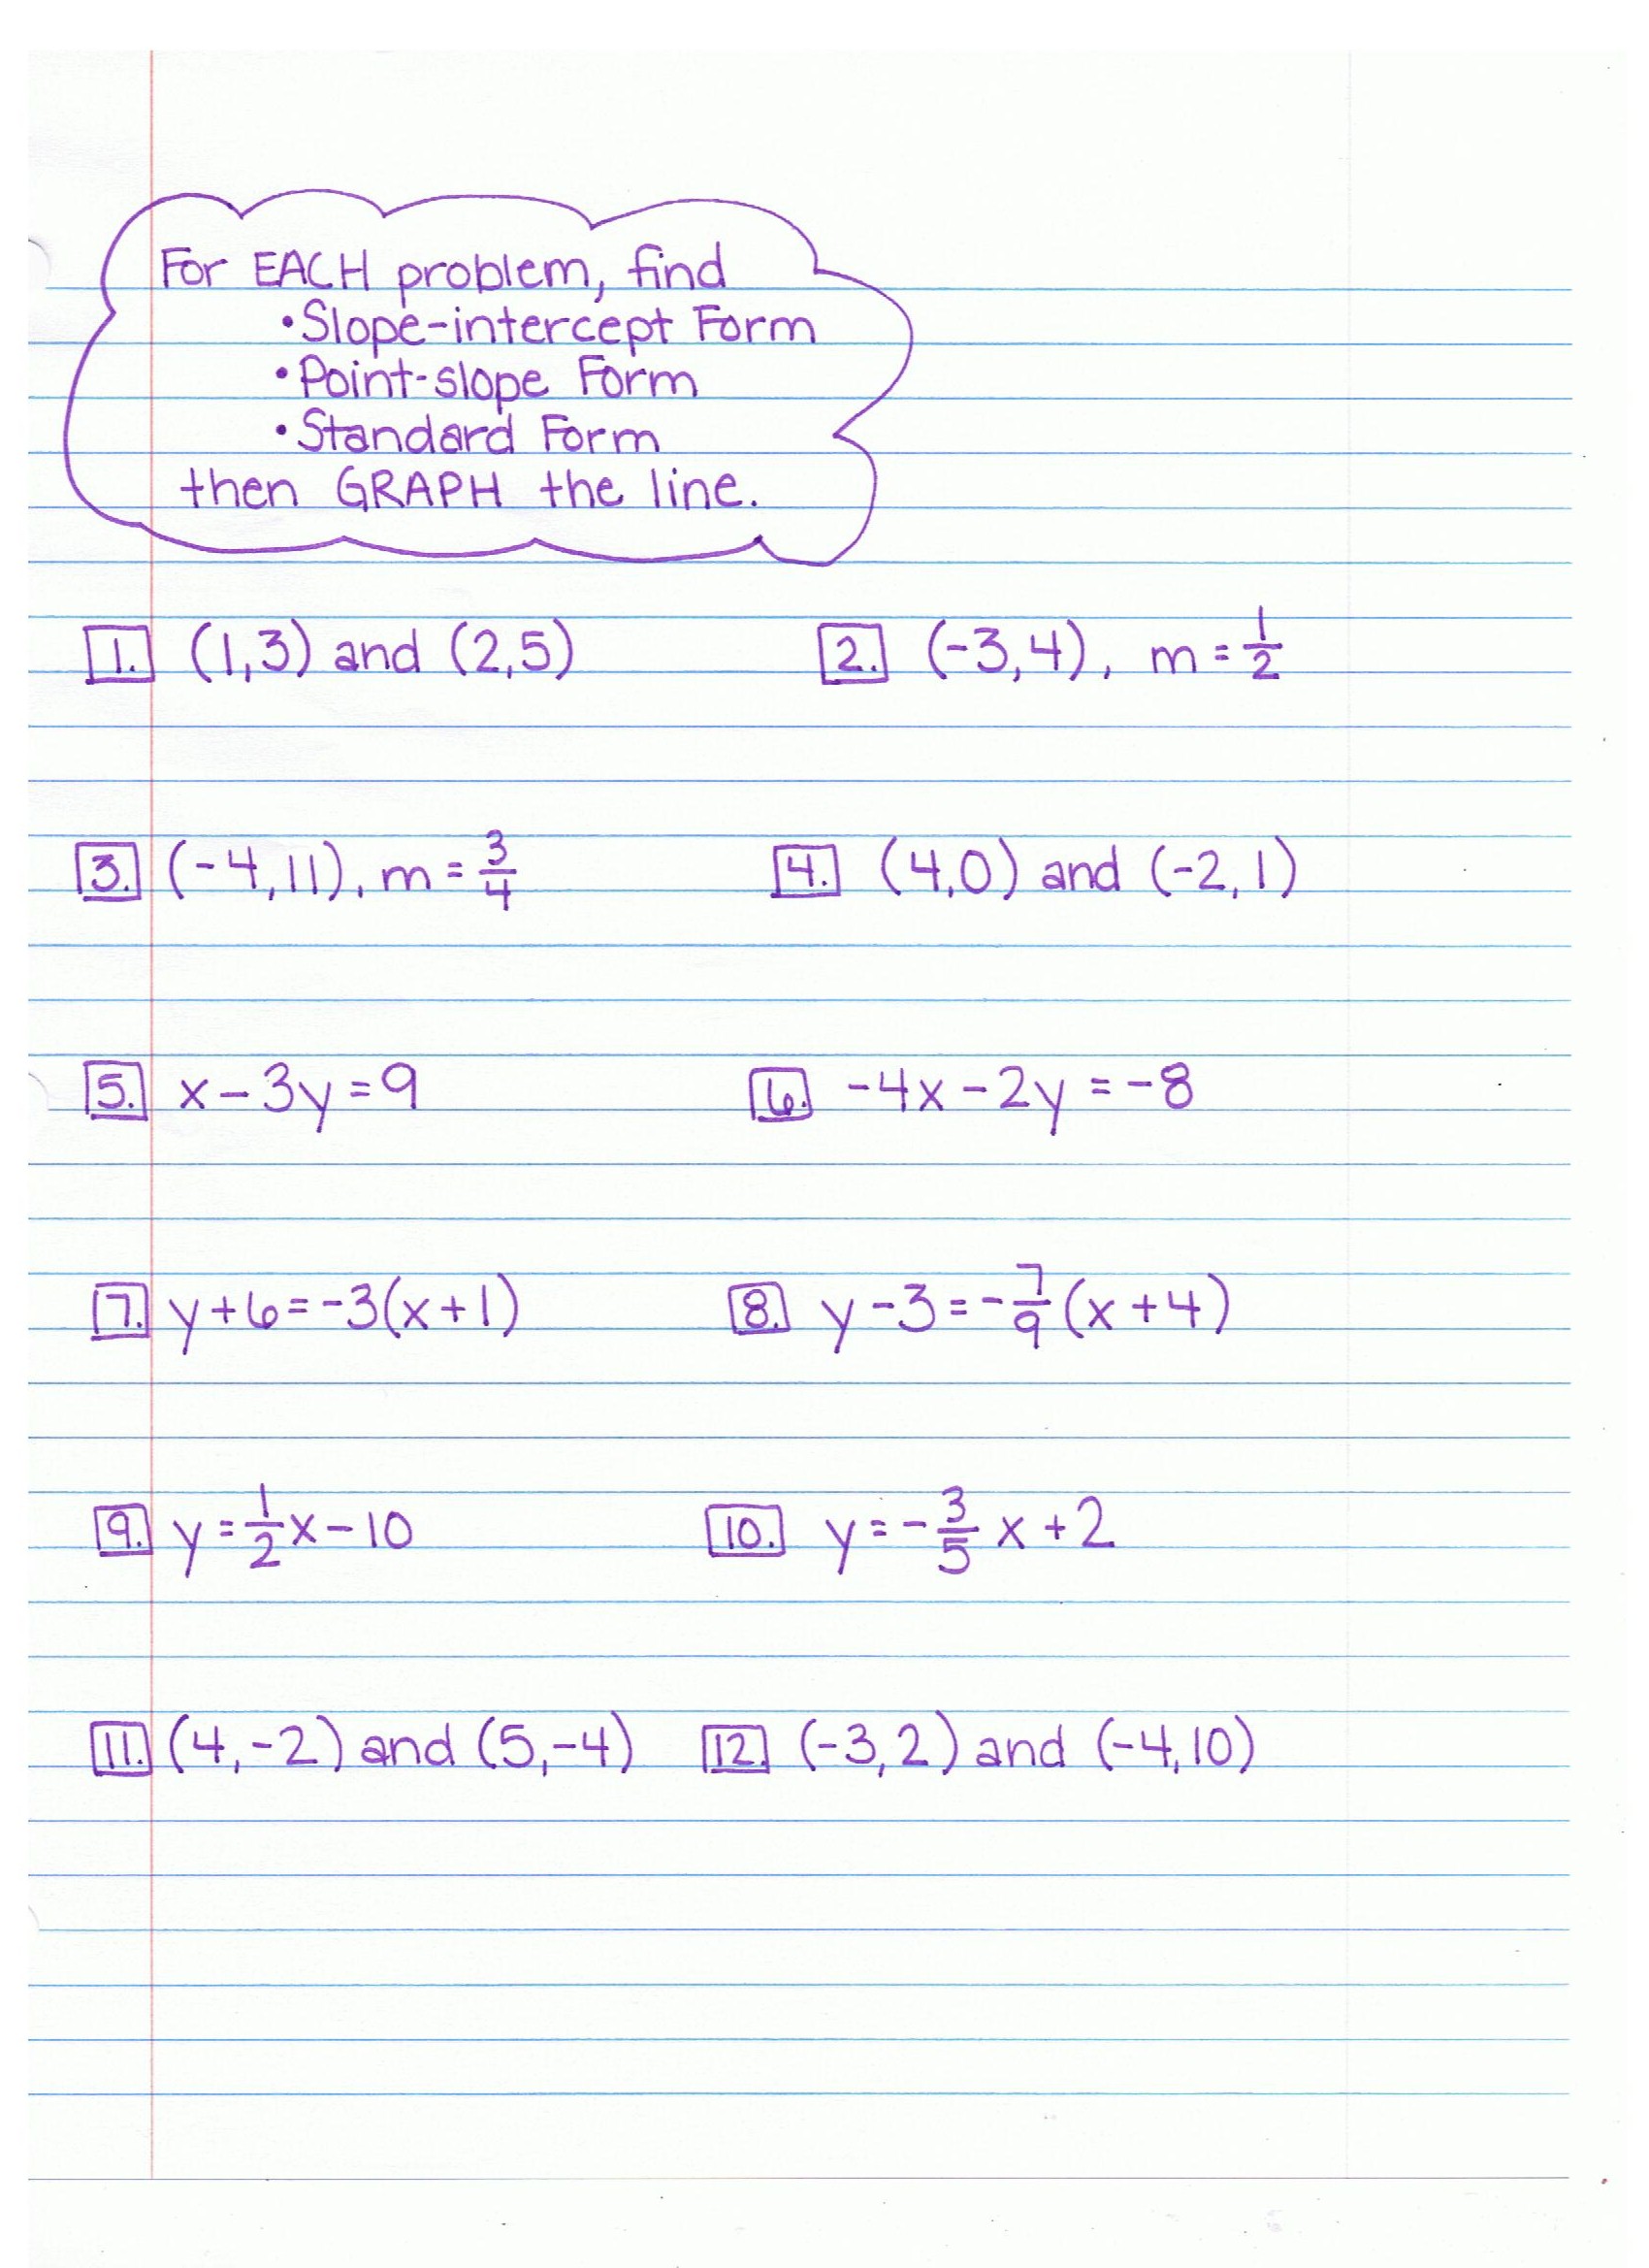 For EACH problem, find
•Slope-intercept Form
•Point-slope Form
•Standard Form
then GRAPH the line.
1. (1,3) and (2,5)
2. (-3,4), m = 1/2
3. (-4,11), m = 3/4
4. (4,0) and (-2,1)
5. x - 3y = 9
6. -4x - 2y = -8
7. y + 6 = -3(x+1)
8. y - 3 = -7/9 (x + 4)
9. y = 1/2 x - 10
10. y = -3/5 x + 2
11. (4,-2) and (5,-4)
12. (-3,2) and (-4,10)